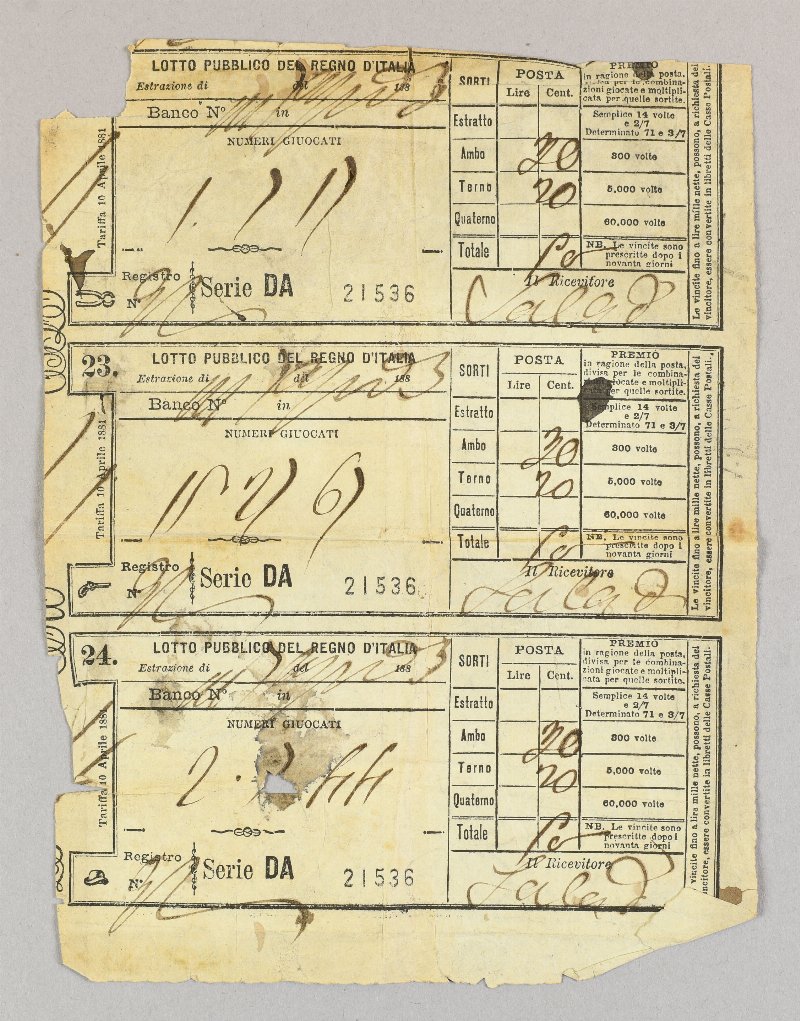 LOTTO PUBBLICO DEL REGNO D'ITALIA
Estrazione di del 188
Banco N° in
NUMERI GIUOCATI
Tariffa 10 Aprile 1881
Registro
N°
Serie DA 21536
SORTI POSTA
Lire Cent.
Estratto
Ambo 30
Terno 20
Quaterno
Totale 50
Il Ricevitore
PREMIO
in ragione della posta,
divisa per le combina-
zioni giocate e moltipli-
cata per quelle sortite.
Semplice 14 volte
e 2/7
Determinato 71 e 3/7
300 volte
5,000 volte
60,000 volte
NB. Le vincite sono
prescritte dopo i
novanta giorni
Le vincite fino a lire mille nette, possono, a richiesta del
vincitore, essere convertite in libretti delle Casse Postali.
23.
LOTTO PUBBLICO DEL REGNO D'ITALIA
Estrazione di del 188
Banco N° in
NUMERI GIUOCATI
Tariffa 10 Aprile 1881
Registro
N°
Serie DA 21536
SORTI POSTA
Lire Cent.
Estratto
Ambo 30
Terno 20
Quaterno
Totale 50
Il Ricevitore
PREMIO
in ragione della posta,
divisa per le combina-
giocate e moltipli-
per quelle sortite.
Semplice 14 volte
e 2/7
Determinato 71 e 3/7
300 volte
5,000 volte
60,000 volte
NB. Le vincite sono
prescritte dopo i
novanta giorni
Le vincite fino a lire mille nette, possono, a richiesta del
vincitore, essere convertite in libretti delle Casse Postali.
24.
LOTTO PUBBLICO DEL REGNO D'ITALIA
Estrazione di del 188
Banco N° in
NUMERI GIUOCATI
2 44
Tariffa 10 Aprile 188
Registro
N°
Serie DA 21536
SORTI POSTA
Lire Cent.
Estratto
Ambo 30
Terno 20
Quaterno
Totale 50
Il Ricevitore
PREMIO
in ragione della posta,
divisa per le combina-
zioni giocate e moltipli-
cata per quelle sortite.
Semplice 14 volte
e 2/7
Determinato 71 e 3/7
300 volte
5,000 volte
60,000 volte
NB. Le vincite sono
prescritte dopo i
novanta giorni
vincite fino a lire mille nette, possono, a richiesta del
incitore, essere convertite in libretti delle Casse Postali.